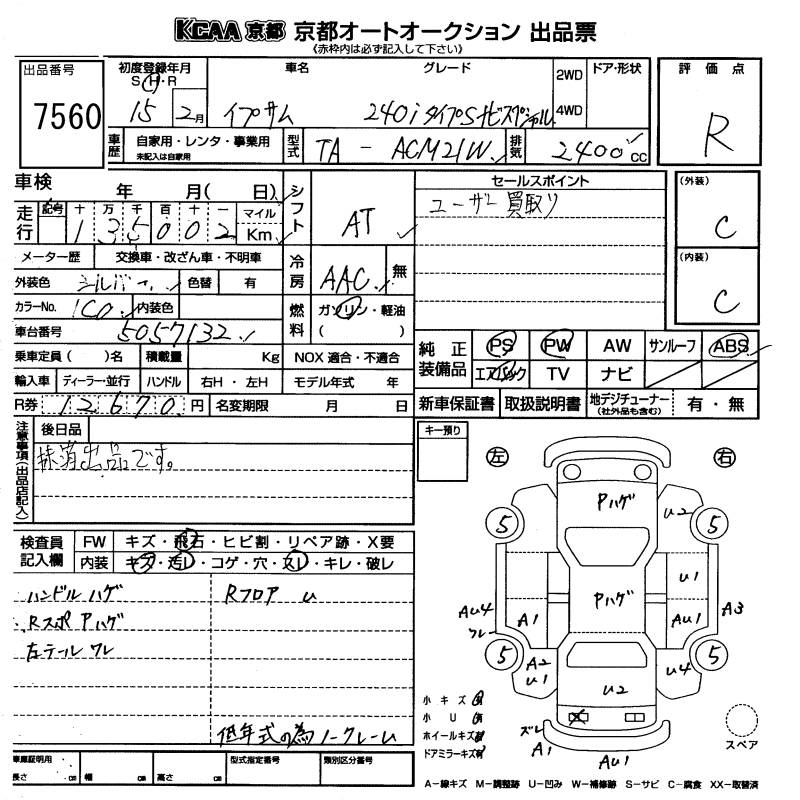 KCAA 京都 京都オートオークション 出品票
(赤枠内は必ず記入して下さい)
出品番号
7560
初度登録年月
S・H・R
15 2月
車名
イプサム
グレード
240iタイプSナビスペシャル
2WD
4WD
ドア・形状
評価点
R
車歴
自家用・レンタ・事業用
未記入は自家用
型式
TA - ACM21W
排気
2400 CC
車検 年 月( 日)
走行
記号 十 万 千 百 十 一 マイル
1 3 5 0 0 2 Km
シフト
AT
セールスポイント
ユーザー買取り
(外装)
C
(内装)
C
メーター歴 交換車・改ざん車・不明車
外装色 シルバー 色替 有
冷房
AAC 無
カラーNo. 1C0 内装色
燃料
ガソリン・軽油
( )
車台番号 5057132
乗車定員( )名 積載量 Kg NOX 適合・不適合
輸入車 ディーラー・並行 ハンドル 右H・左H モデル年式 年
R券 12670 円 名変期限 月 日
純正装備品
PS PW AW サンルーフ ABS
エアバック TV ナビ
新車保証書 取扱説明書 地デジチューナー(社外品も含む) 有・無
注意事項(出品店記入)
後日品
抹消出品です。
キー預り
検査員記入欄
FW キズ・飛石・ヒビ割・リペア跡・X要
内装 キズ・汚レ・コゲ・穴・スレ・キレ・破レ
ハンドルハゲ
Rスポ Pハゲ
左テール ワレ
Rフロア U
低年式の為ノークレーム
左 右
Pハゲ
U2
5 5
U1
Pハゲ
AU4
ワレ
A1
AU1
A3
5 5
A2
U1
U4
U2
ズレ
A1
AU1
小キズ有
小U有
ホイールキズ有
ドアミラーキズ有
スペア
車庫証明用
長さ cm 幅 cm 高さ cm
型式指定番号
類別区分番号
A-線キズ M-調整跡 U-凹み W-補修跡 S-サビ C-腐食 XX-取替済